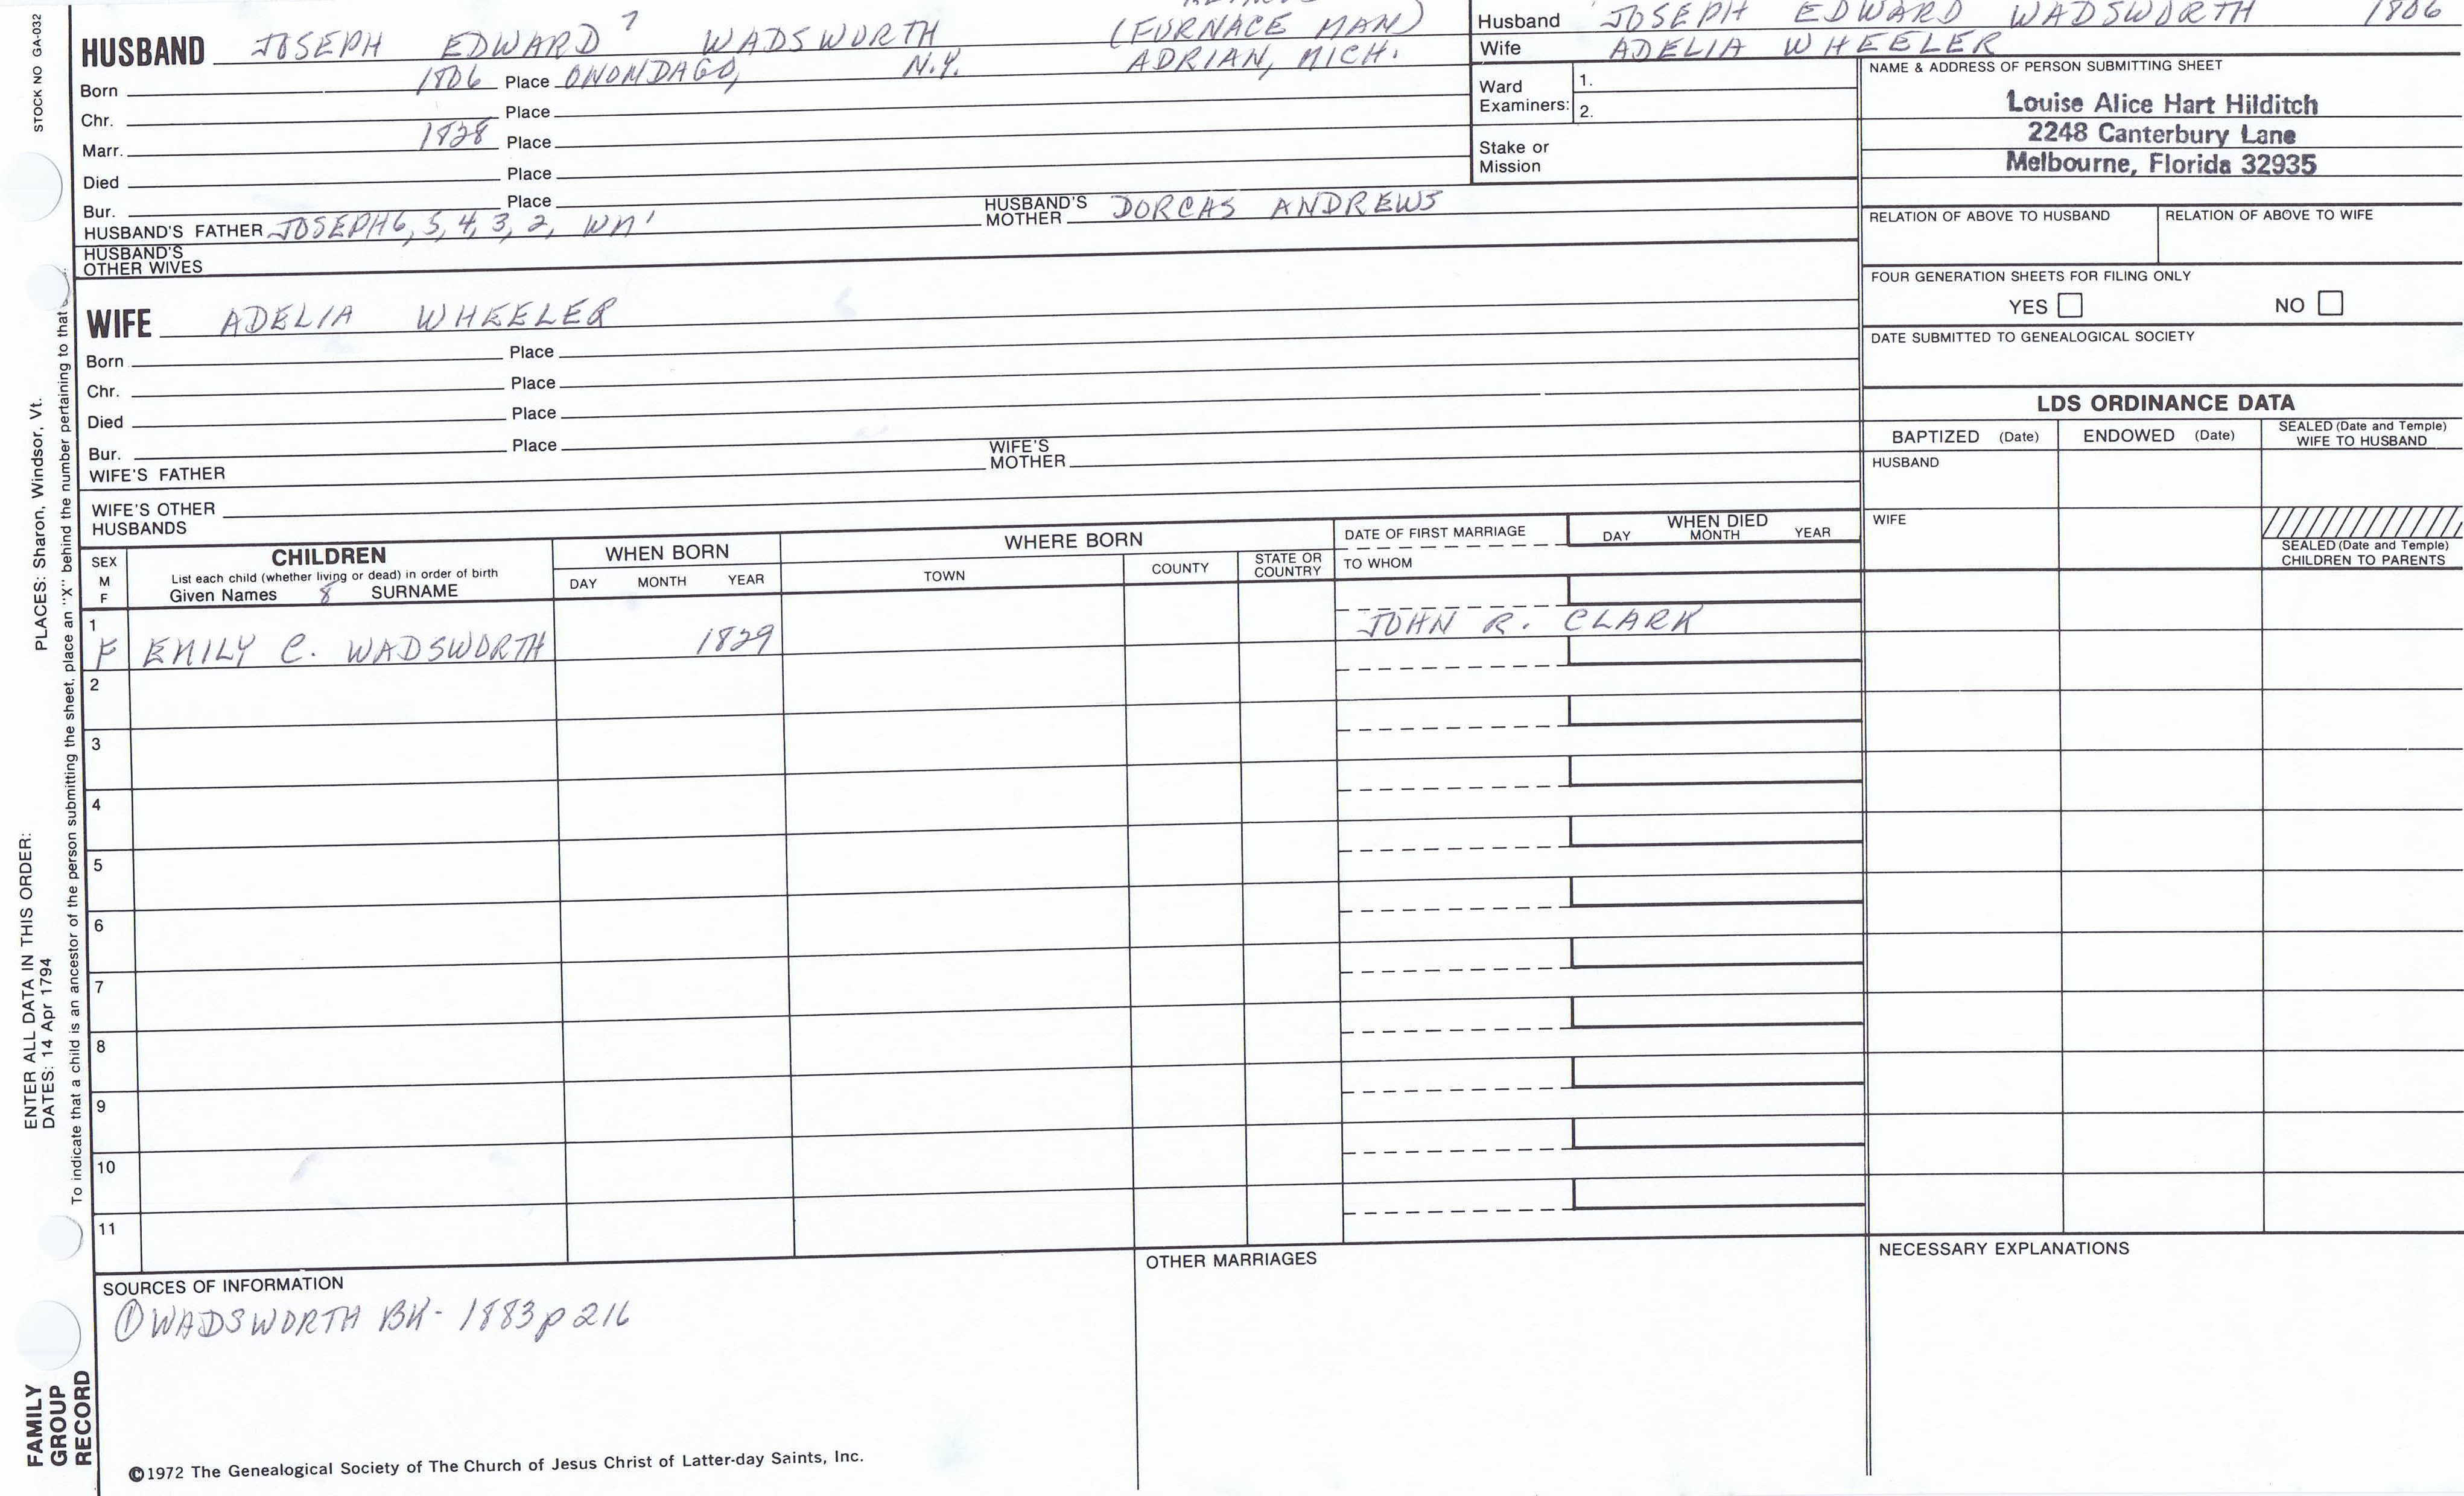 STOCK NO GA-032
PLACES: Sharon, Windsor, Vt.
ENTER ALL DATA IN THIS ORDER:
DATES: 14 Apr 1794
To indicate that a child is an ancestor of the person submitting the sheet, place an "X" behind the number pertaining to that
FAMILY
GROUP
RECORD
(FURNACE MAN)
HUSBAND JOSEPH EDWARD 7 WADSWORTH ADRIAN, MICH.
Born 1806 Place ONONDAGO, N.Y.
Chr. Place
Marr. 1828 Place
Died Place
Bur. Place
HUSBAND'S FATHER JOSEPH 6, 5, 4, 3, 2, WM' HUSBAND'S MOTHER DORCAS ANDREWS
HUSBAND'S
OTHER WIVES
WIFE ADELIA WHEELER
Born Place
Chr. Place
Died Place
Bur. Place
WIFE'S FATHER WIFE'S MOTHER
WIFE'S OTHER
HUSBANDS
Husband JOSEPH EDWARD WADSWORTH 1806
Wife ADELIA WHEELER
Ward
Examiners: 1.
2.
Stake or
Mission
NAME & ADDRESS OF PERSON SUBMITTING SHEET
Louise Alice Hart Hilditch
2248 Canterbury Lane
Melbourne, Florida 32935
RELATION OF ABOVE TO HUSBAND RELATION OF ABOVE TO WIFE
FOUR GENERATION SHEETS FOR FILING ONLY
YES NO
DATE SUBMITTED TO GENEALOGICAL SOCIETY
LDS ORDINANCE DATA
BAPTIZED (Date) ENDOWED (Date) SEALED (Date and Temple)
WIFE TO HUSBAND
HUSBAND
WIFE
SEALED (Date and Temple)
CHILDREN TO PARENTS
SEX
M
F
CHILDREN
List each child (whether living or dead) in order of birth
Given Names 8 SURNAME
WHEN BORN
DAY MONTH YEAR
WHERE BORN
TOWN COUNTY STATE OR
COUNTRY
DATE OF FIRST MARRIAGE
TO WHOM
WHEN DIED
DAY MONTH YEAR
1
F EMILY C. WADSWORTH 1829 JOHN R. CLARK
2
3
4
5
6
7
8
9
10
11
SOURCES OF INFORMATION
① WADSWORTH BK- 1883 p 216
OTHER MARRIAGES
NECESSARY EXPLANATIONS
©1972 The Genealogical Society of The Church of Jesus Christ of Latter-day Saints, Inc.